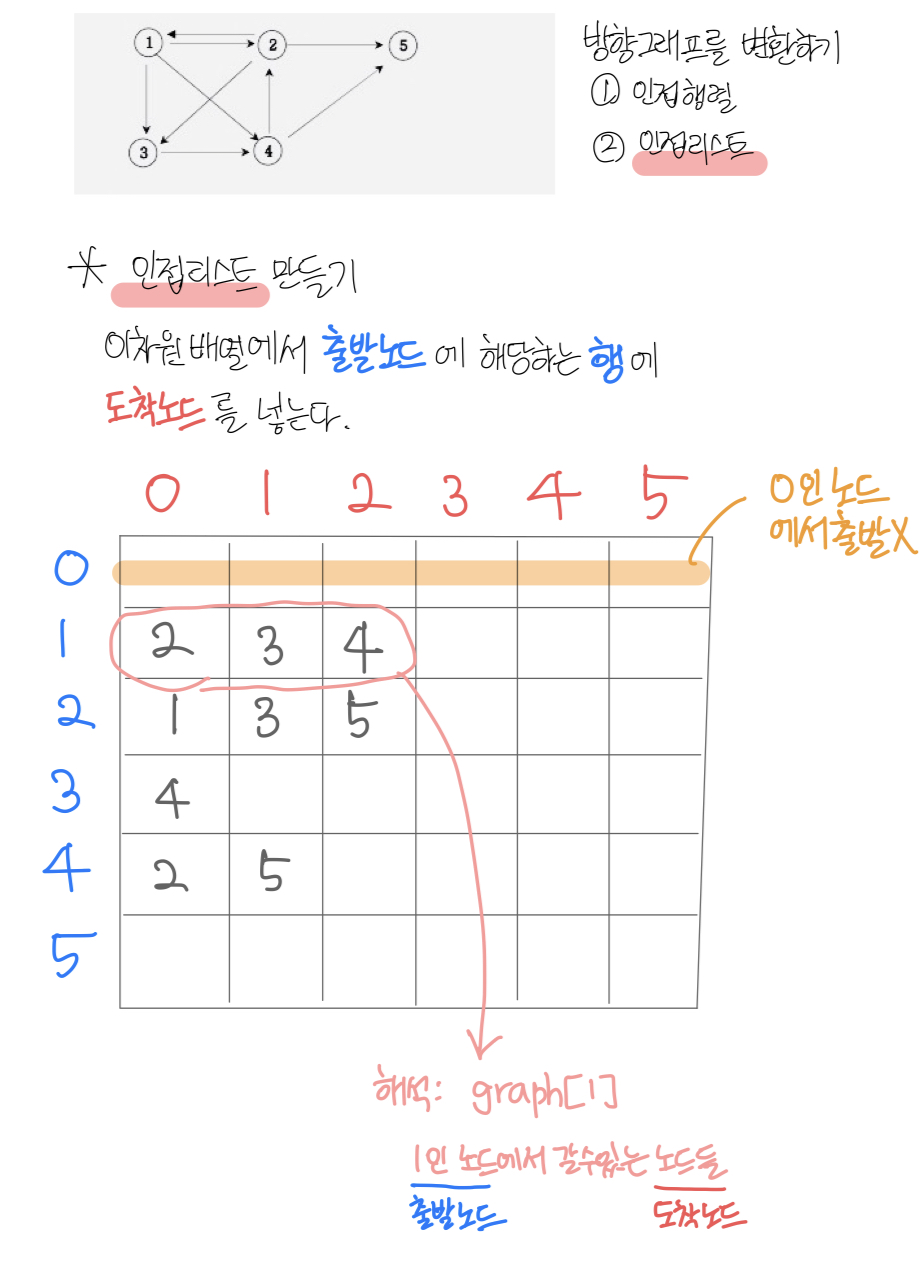 1 2 5
3 4
방향그래프를 변환하기
① 인접행렬
② 인접리스트
* 인접리스트 만들기
이차원 배열에서 출발노드에 해당하는 행에
도착노드를 넣는다.
0 1 2 3 4 5
0인 노드
에서 출발X
0
1 2 3 4
2 1 3 5
3 4
4 2 5
5
해석: graph[1]
1인 노드에서 갈수있는 노드들
출발노드 도착노드